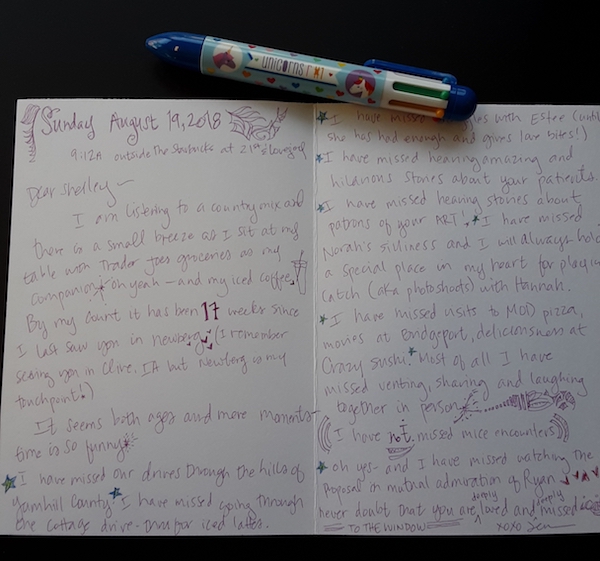 UNICORNS R #1
Sunday August 19, 2018
9:12A outside the Starbucks at 21st &
Dear Shelley ~
I am listening to a country mix and
there is a small breeze as I sit at my
table with Trader Joes groceries as my
companion oh yeah — and my iced coffee.
By my count it has been 17 weeks since
I last saw you in Newberg. (I remember
seeing you in Clive, IA but Newberg is my
touchpoint!)
It seems both ages and mere moments-
time is so funny
I have missed our drives through the hills of
Yamhill County. I have missed going through
the Cottage drive-thru for iced lattes.
I have missed with Estee (until
she has had enough and gives love bites!)
I have missed hearing amazing and
hilarious stories about your patients.
I have missed hearing stories about
patrons of your ART. I have missed
Norah's silliness and I will always hold
a special place in my heart for playing
catch (aka photoshoots) with Hannah.
I have missed visits to MOD pizza,
movies at Bridgeport, deliciousness at
Crazy Sushi. Most of all I have
missed venting, sharing and laughing
together in person
(I have not missed mice encounters)
oh yes- and I have missed watching the
Proposal in mutual admiration of Ryan
never doubt that you are deeply loved and deeply missed
TO THE WINDOW xoxo Jen